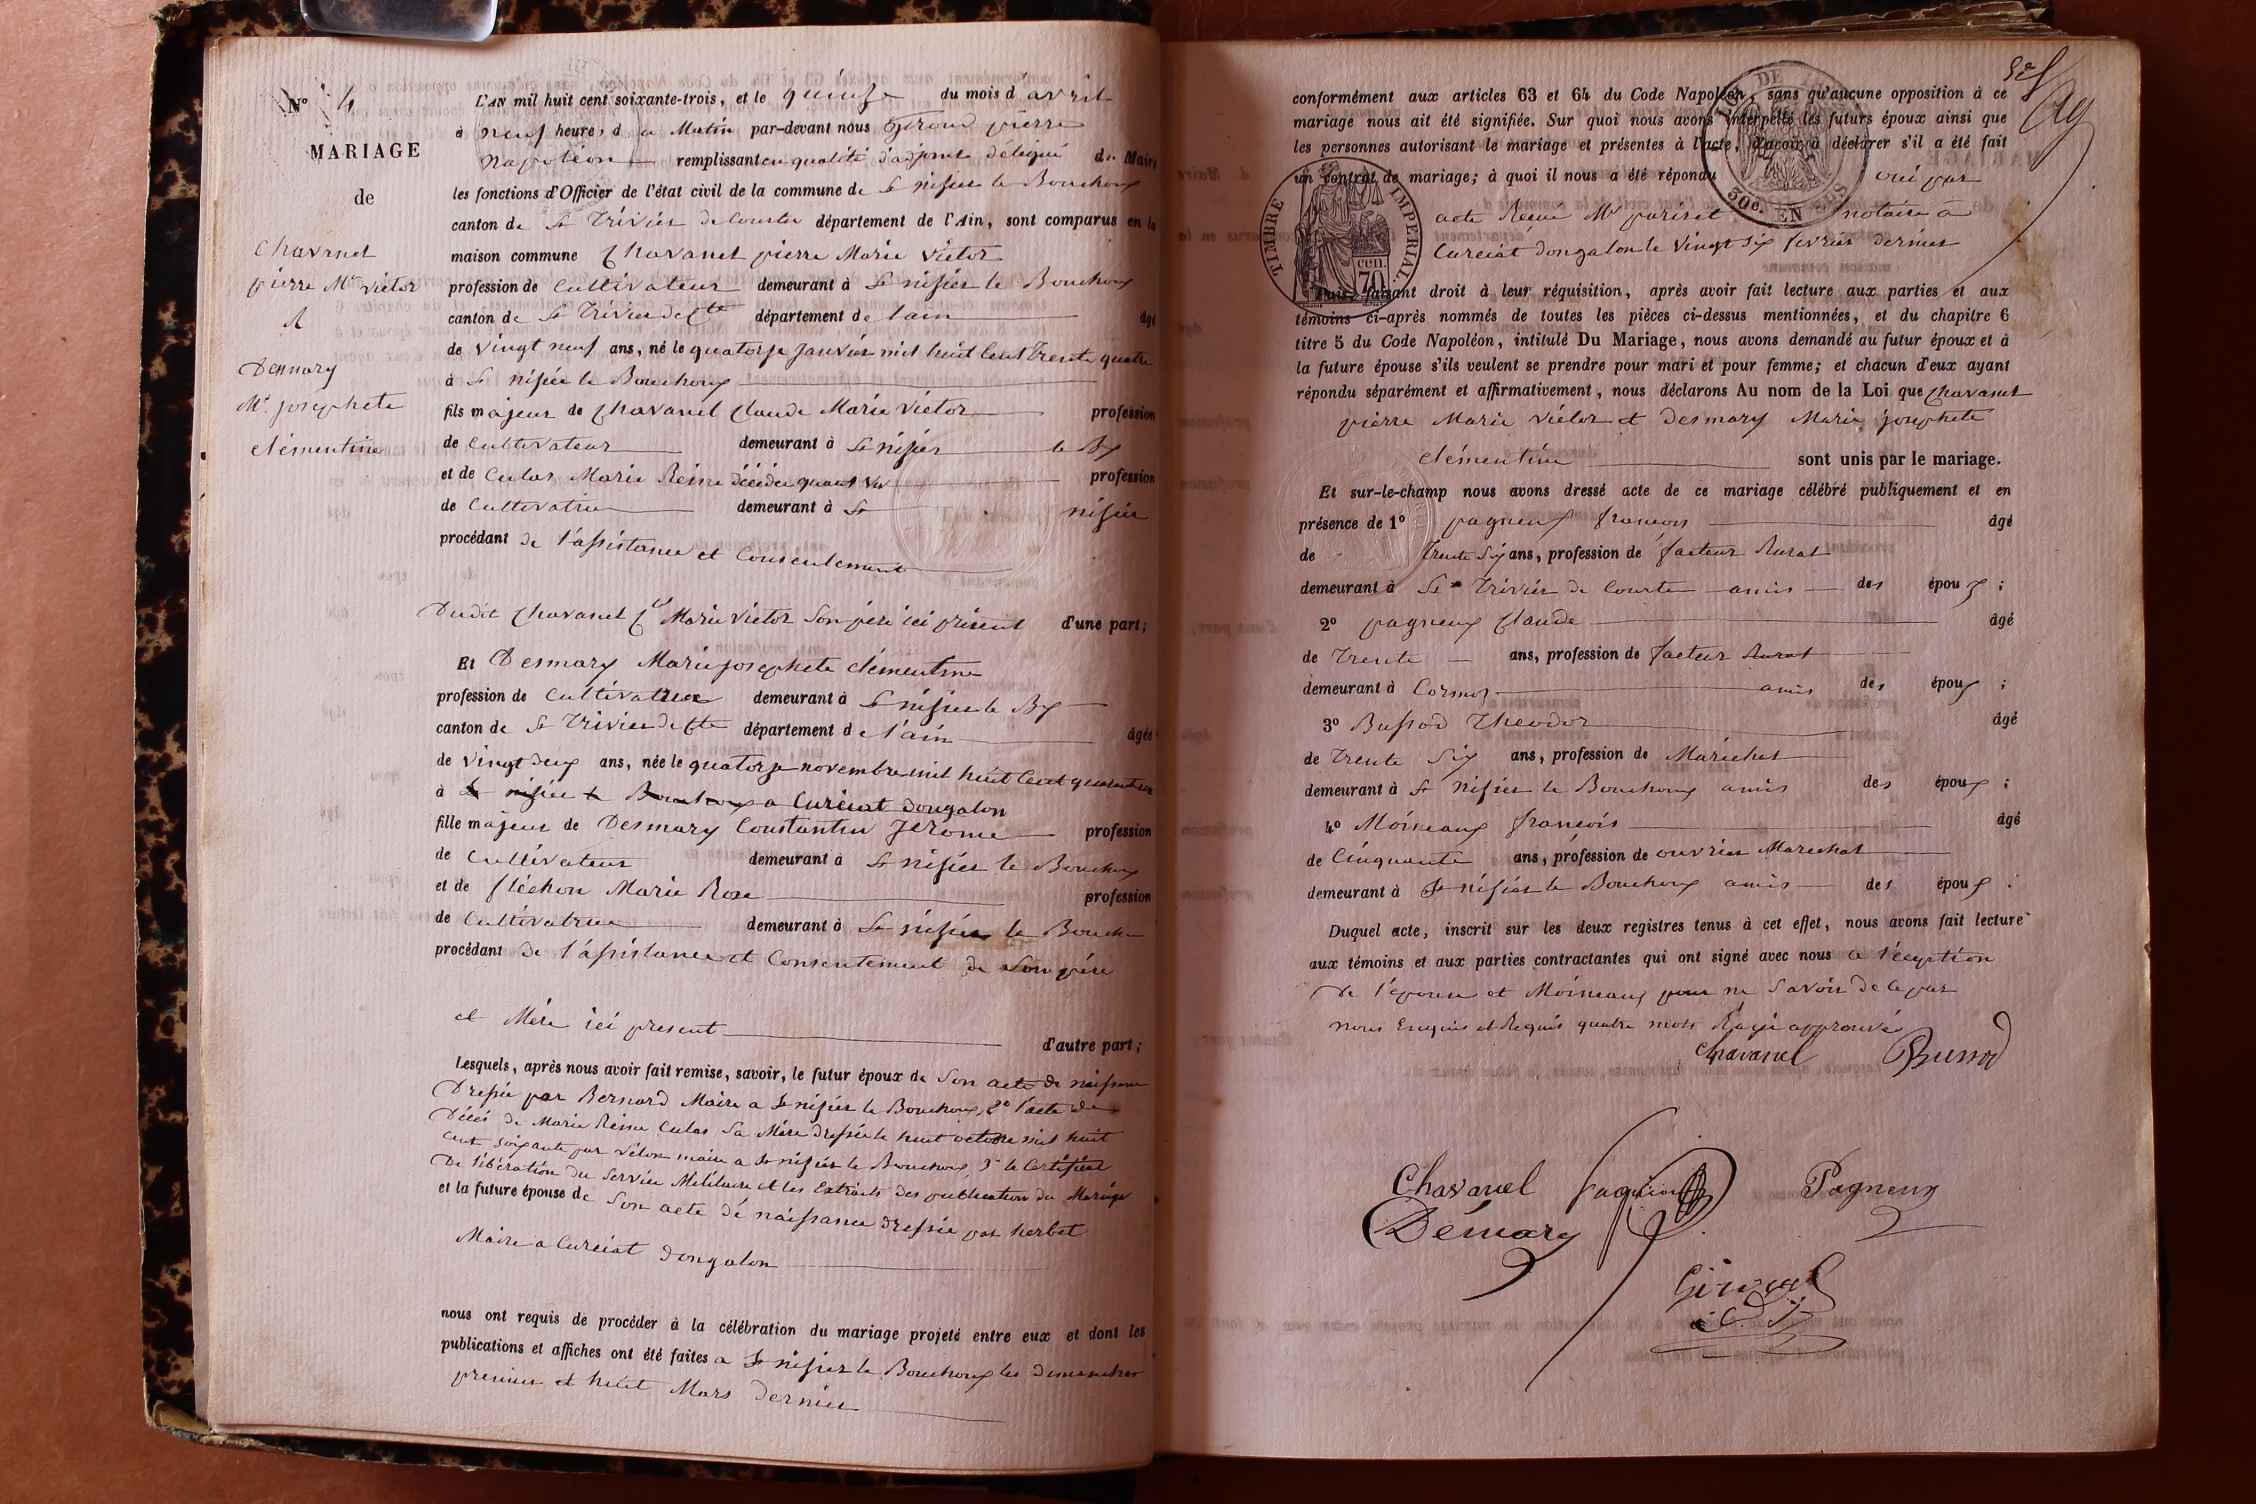 N° 4
MARIAGE
de
Chavanel
pierre Mie victor
&
Desmary
Me josephete
clémentine
L'AN mil huit cent soixante-trois, et le quinze du mois d avril
à neuf heures d u Matin par-devant nous Giroud pierre
Napoléon remplissant en qualité d'adjoint délégué du Maire
les fonctions d'Officier de l'état civil de la commune de St nisier le Bouchoux
canton de St Trivier de Courtes département de l'Ain, sont comparus en la
maison commune Chavanel pierre Marie victor
profession de Cultivateur demeurant à St nisier le Bouchoux
canton de St Trivier de Cte département de l'ain âgé
de vingt neuf ans, né le quatorze Janvier mil huit Cent Trente quatre
à St nisier le Bouchoux
fils majeur de Chavanel Claude Marie Victor profession
de Cultivateur demeurant à St nisier le Bx
et de Culas Marie Reine décédée profession
de Cultivatrice demeurant à St nisier
procédant de l'assistance et Consentement
Dudit Chavanel Cde Marie victor Son père ici présent d'une part;
Et Desmary Marie josephete clémentine
profession de Cultivatrice demeurant à St nisier le Bx
canton de St Trivier de Cte département d e l'ain âgée
de vingt deux ans, née le quatorze novembre mil huit Cent quarante
à St nisier le Bouchoux a Curciat dongalon
fille majeur de Desmary Constantin Jérome profession
de Cultivateur demeurant à St nisier le Bouchoux
et de fléchon Marie Rose profession
de Cultivatrice demeurant à St nisier le Bouch
procédant de l'assistance et Consentement de Son père
et Mère ici present d'autre part;
Lesquels, après nous avoir fait remise, savoir, le futur époux de Son acte de naissance
Dressée par Bernard Maire a St nisier le Bouchoux, 2° l'acte de
Décès de Marie Reine Culas Sa Mère dressée le huit octobre mil huit
cent soixante par vélon maire a St nisier le Bouchoux, 3° le Certificat
De libération du Service Militaire et les Extraits des publication du Mariage
et la future épouse de Son acte de naissance dressée par herbet
Maire a Curciat dongalon
nous ont requis de procéder à la célébration du mariage projeté entre eux et dont les
publications et affiches ont été faites a St nisier le Bouchoux les dimanches
premier et huit Mars dernier
conformément aux articles 63 et 64 du Code Napoléon, sans qu'aucune opposition à ce
mariage nous ait été signifiée. Sur quoi nous avons interpellé les futurs époux ainsi que
les personnes autorisant le mariage et présentes à l'acte, d'avoir à déclarer s'il a été fait
un contrat de mariage; à quoi il nous a été répondu oui par
acte Reçue Me pariset notaire à
Curciat dongalon le vingt six février dernier
TIMBRE IMPERIAL
cen. 70
30c. EN SUS
Puis, faisant droit à leur réquisition, après avoir fait lecture aux parties et aux
témoins ci-après nommés de toutes les pièces ci-dessus mentionnées, et du chapitre 6
titre 5 du Code Napoléon, intitulé Du Mariage, nous avons demandé au futur époux et à
la future épouse s'ils veulent se prendre pour mari et pour femme; et chacun d'eux ayant
répondu séparément et affirmativement, nous déclarons Au nom de la Loi que Chavanel
pierre Marie victor et Desmary Marie josephete
clémentine sont unis par le mariage.
Et sur-le-champ nous avons dressé acte de ce mariage célébré publiquement et en
présence de 1° pagneux françois âgé
de Trente six ans, profession de facteur Rural
demeurant à St Trivier de Courtes amis des époux ;
2° pagneux Claude âgé
de Trente ans, profession de facteur Rural
demeurant à Cormoz amis des époux ;
3° Bussod Theodor âgé
de Trente Six ans, profession de Maréchal
demeurant à St nisier le Bouchoux amis des époux ;
4° Moineaux françois âgé
de Cinquante ans, profession de ouvrier Marechal
demeurant à St nisier le Bouchoux amis des époux :
Duquel acte, inscrit sur les deux registres tenus à cet effet, nous avons fait lecture
aux témoins et aux parties contractantes qui ont signé avec nous a l'éception
De l'épouse et Moineaux pour ne Savoir de ce par
nous Enquis et Requis quatre mots Rayé approuvé
Chavanel Bussod
Chavanel Pagneux Pagneux
Démary
Giroud